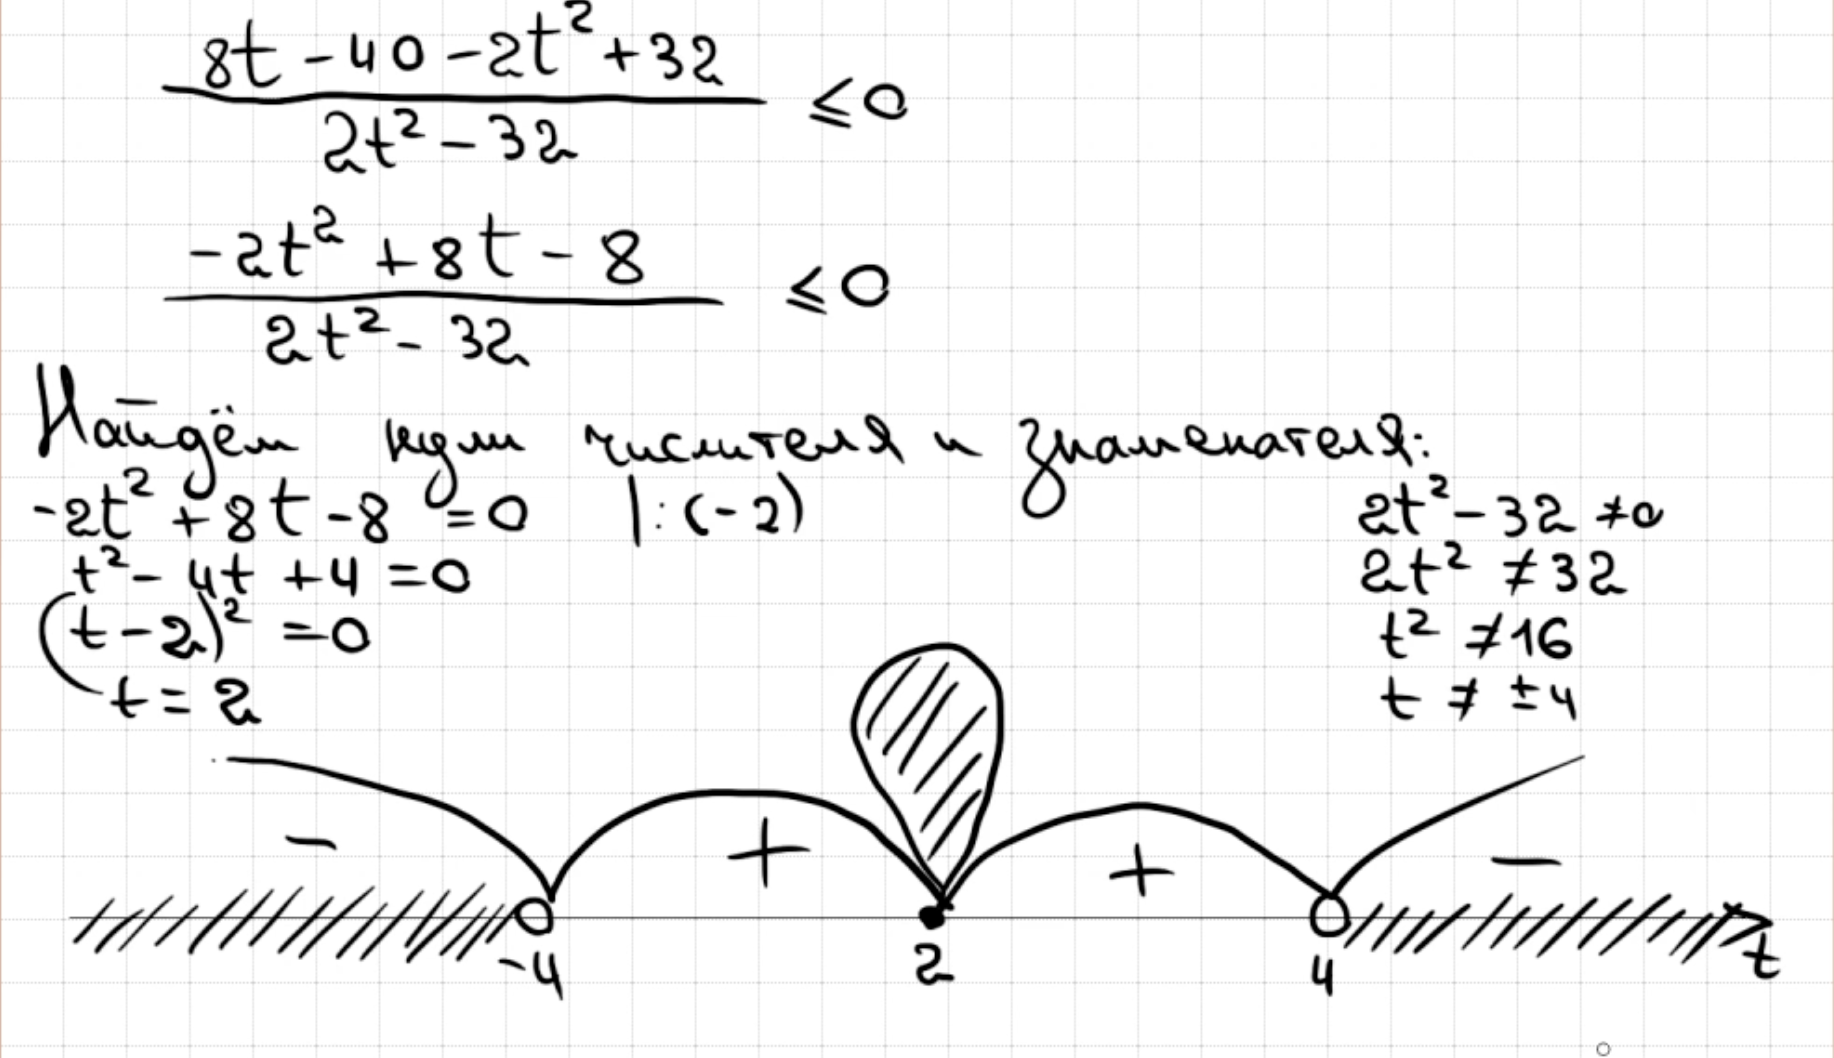 8t - 40 - 2t² + 32
2t² - 32
≤ 0
-2t² + 8t - 8
2t² - 32
≤ 0
Найдём нули числителя и знаменателя:
-2t² + 8t - 8 = 0 |:(-2)
t² - 4t + 4 = 0
(t - 2)² = 0
t = 2
2t² - 32 ≠ 0
2t² ≠ 32
t² ≠ 16
t ≠ ±4
- + + -
-4 2 4 t